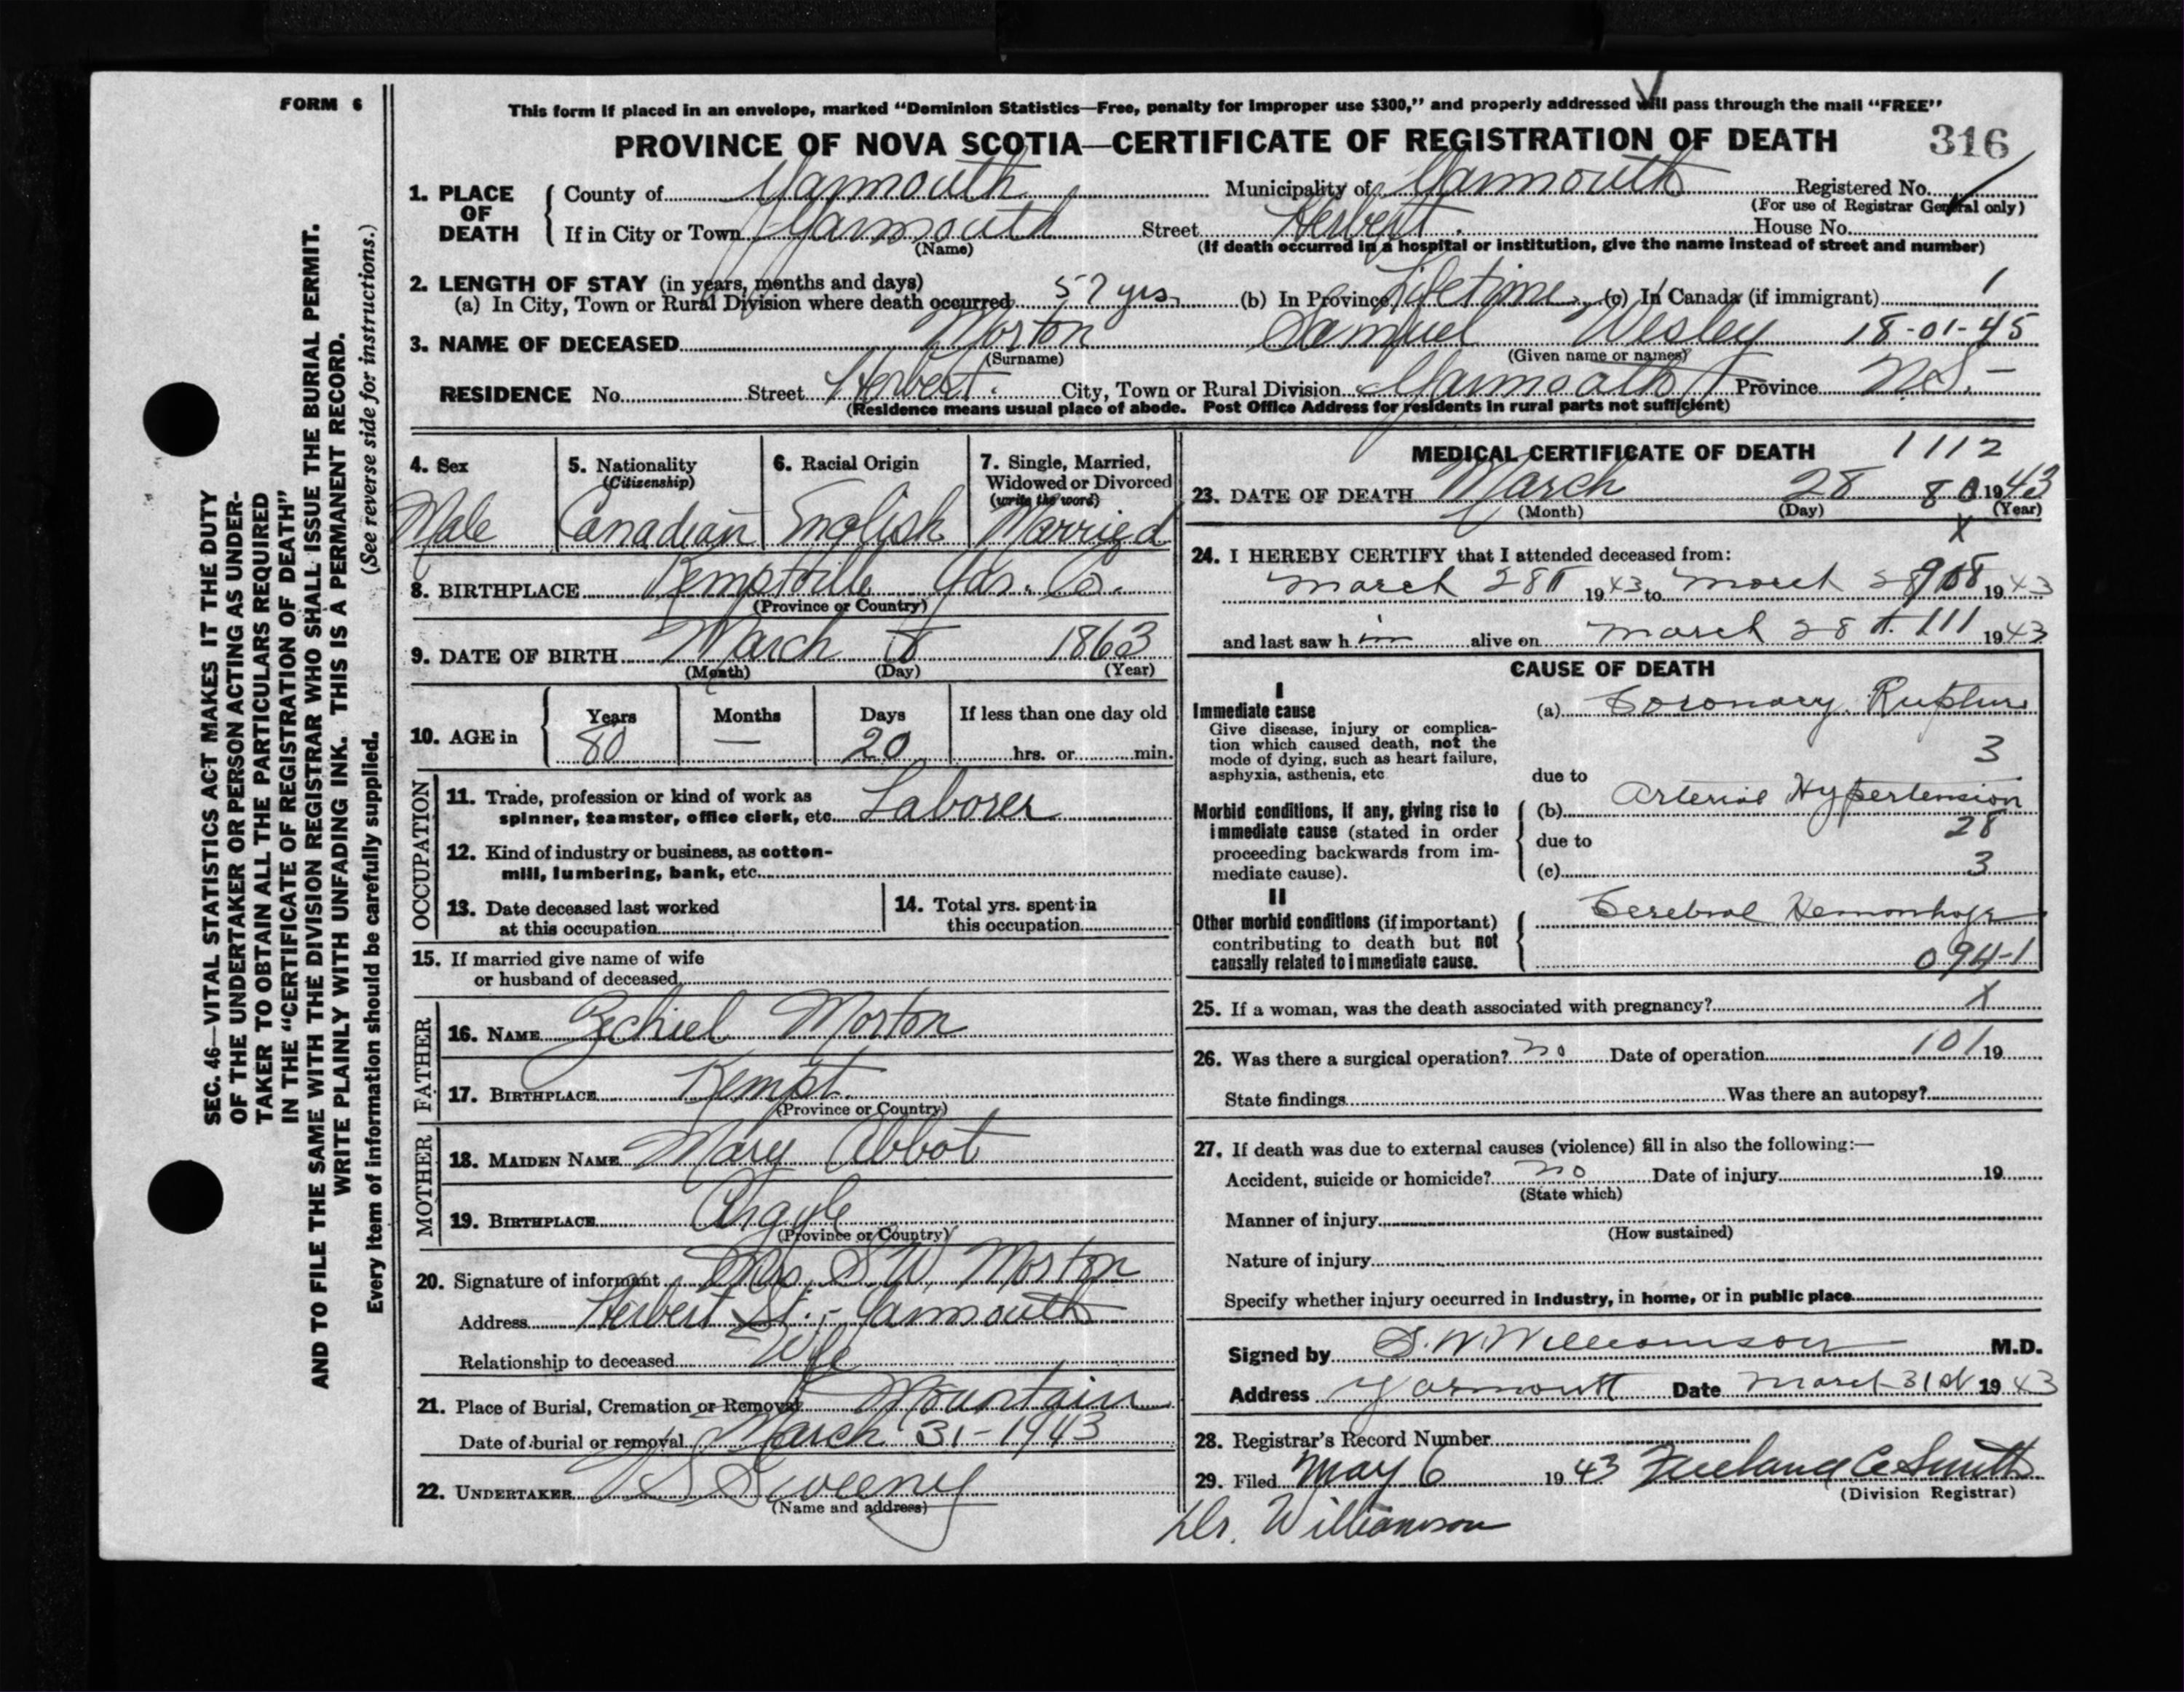 FORM 6
This form if placed in an envelope, marked "Dominion Statistics—Free, penalty for improper use $300," and properly addressed will pass through the mail "FREE"
PROVINCE OF NOVA SCOTIA—CERTIFICATE OF REGISTRATION OF DEATH 316
1. PLACE OF DEATH
County of Yarmouth Municipality of Yarmouth Registered No.
(For use of Registrar General only)
If in City or Town Yarmouth Street Herbert. House No.
(Name) (If death occurred in a hospital or institution, give the name instead of street and number)
2. LENGTH OF STAY (in years, months and days)
(a) In City, Town or Rural Division where death occurred 57 yrs. (b) In Province Lifetime (c) In Canada (if immigrant) 1
3. NAME OF DECEASED Morton Samuel Wesley 18-01-45
(Surname) (Given name or names)
RESIDENCE No. Street Herbert. City, Town or Rural Division Yarmouth Province N.S. -
(Residence means usual place of abode. Post Office Address for residents in rural parts not sufficient)
4. Sex
Male
5. Nationality
(Citizenship)
Canadian
6. Racial Origin
English
7. Single, Married,
Widowed or Divorced
(write the word)
Married
8. BIRTHPLACE Kemptville Yar. Co.
(Province or Country)
9. DATE OF BIRTH March 8 1863
(Month) (Day) (Year)
10. AGE in
Years Months Days If less than one day old
80 — 20 hrs. or min.
OCCUPATION
11. Trade, profession or kind of work as
spinner, teamster, office clerk, etc. Laborer
12. Kind of industry or business, as cotton-
mill, lumbering, bank, etc.
13. Date deceased last worked
at this occupation
14. Total yrs. spent in
this occupation
15. If married give name of wife
or husband of deceased
FATHER
16. NAME Ezekiel Morton
17. BIRTHPLACE Kempt.
(Province or Country)
MOTHER
18. MAIDEN NAME Mary Abbot
19. BIRTHPLACE Argyle
(Province or Country)
20. Signature of informant Mrs. S W Morton
Address Herbert St. - Yarmouth
Relationship to deceased Wife
21. Place of Burial, Cremation or Removal Mountain
Date of burial or removal March 31-1943
22. UNDERTAKER Sweeny
(Name and address)
MEDICAL CERTIFICATE OF DEATH 1112
23. DATE OF DEATH March 28 1943
(Month) (Day) (Year)
X
24. I HEREBY CERTIFY that I attended deceased from:
March 28th 1943 to March 28 1943
and last saw him alive on March 28th 111 1943
CAUSE OF DEATH
I
Immediate cause
Give disease, injury or complica-
tion which caused death, not the
mode of dying, such as heart failure,
asphyxia, asthenia, etc
(a) Coronary Rupture
3
due to
Morbid conditions, if any, giving rise to
immediate cause (stated in order
proceeding backwards from im-
mediate cause).
(b) Arterial Hypertension
28
due to
(c) 3
II
Other morbid conditions (if important)
contributing to death but not
causally related to immediate cause.
Cerebral Hemorrhage
094-1
25. If a woman, was the death associated with pregnancy? X
26. Was there a surgical operation? no Date of operation 101 19
State findings Was there an autopsy?
27. If death was due to external causes (violence) fill in also the following:—
Accident, suicide or homicide? no Date of injury 19
(State which)
Manner of injury
(How sustained)
Nature of injury
Specify whether injury occurred in industry, in home, or in public place
Signed by S.W. Williamson M.D.
Address Yarmouth Date March 31st 1943
28. Registrar's Record Number
29. Filed May 6 1943 C Smith
(Division Registrar)
Dr. Williamson
SEC. 46—VITAL STATISTICS ACT MAKES IT THE DUTY
OF THE UNDERTAKER OR PERSON ACTING AS UNDER-
TAKER TO OBTAIN ALL THE PARTICULARS REQUIRED
IN THE "CERTIFICATE OF REGISTRATION OF DEATH"
AND TO FILE THE SAME WITH THE DIVISION REGISTRAR WHO SHALL ISSUE THE BURIAL PERMIT.
WRITE PLAINLY WITH UNFADING INK. THIS IS A PERMANENT RECORD.
Every item of information should be carefully supplied. (See reverse side for instructions.)